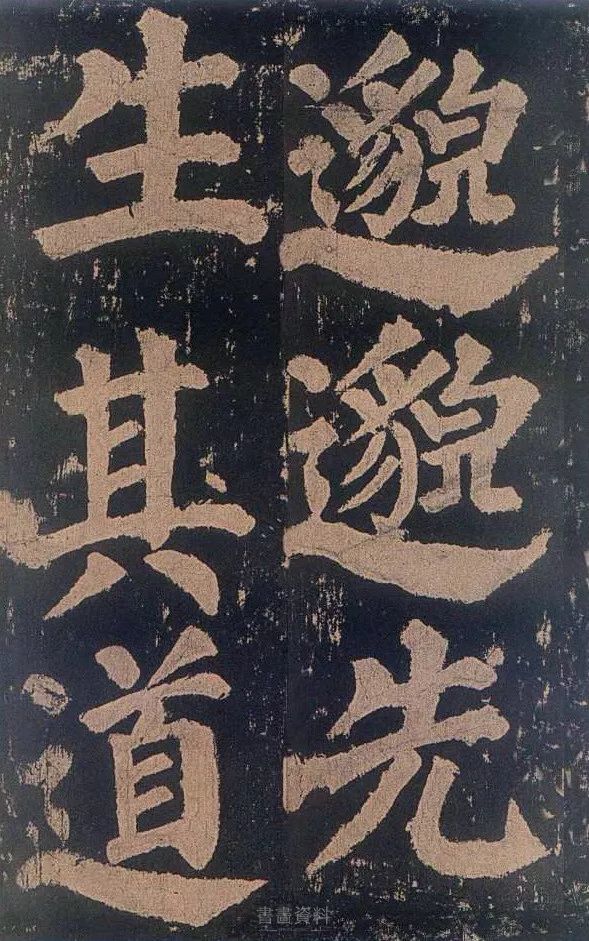 邈邈先
生其道
書畫資料